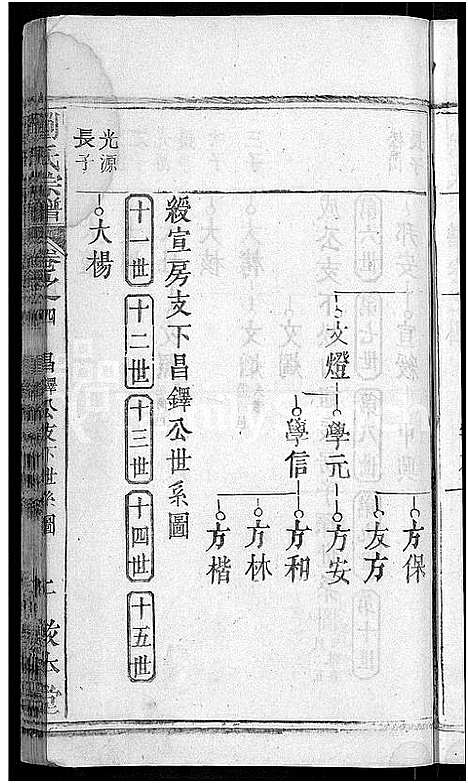 方保
友方
方安
方和
方林
方楷
學元
學信
文燈
綬宣房支下昌鐸公世系圖
十一世
十二世
十三世
十四世
十五世
光源
長子
大楊
劉氏宗譜
卷之四
昌鐸公支下世系圖